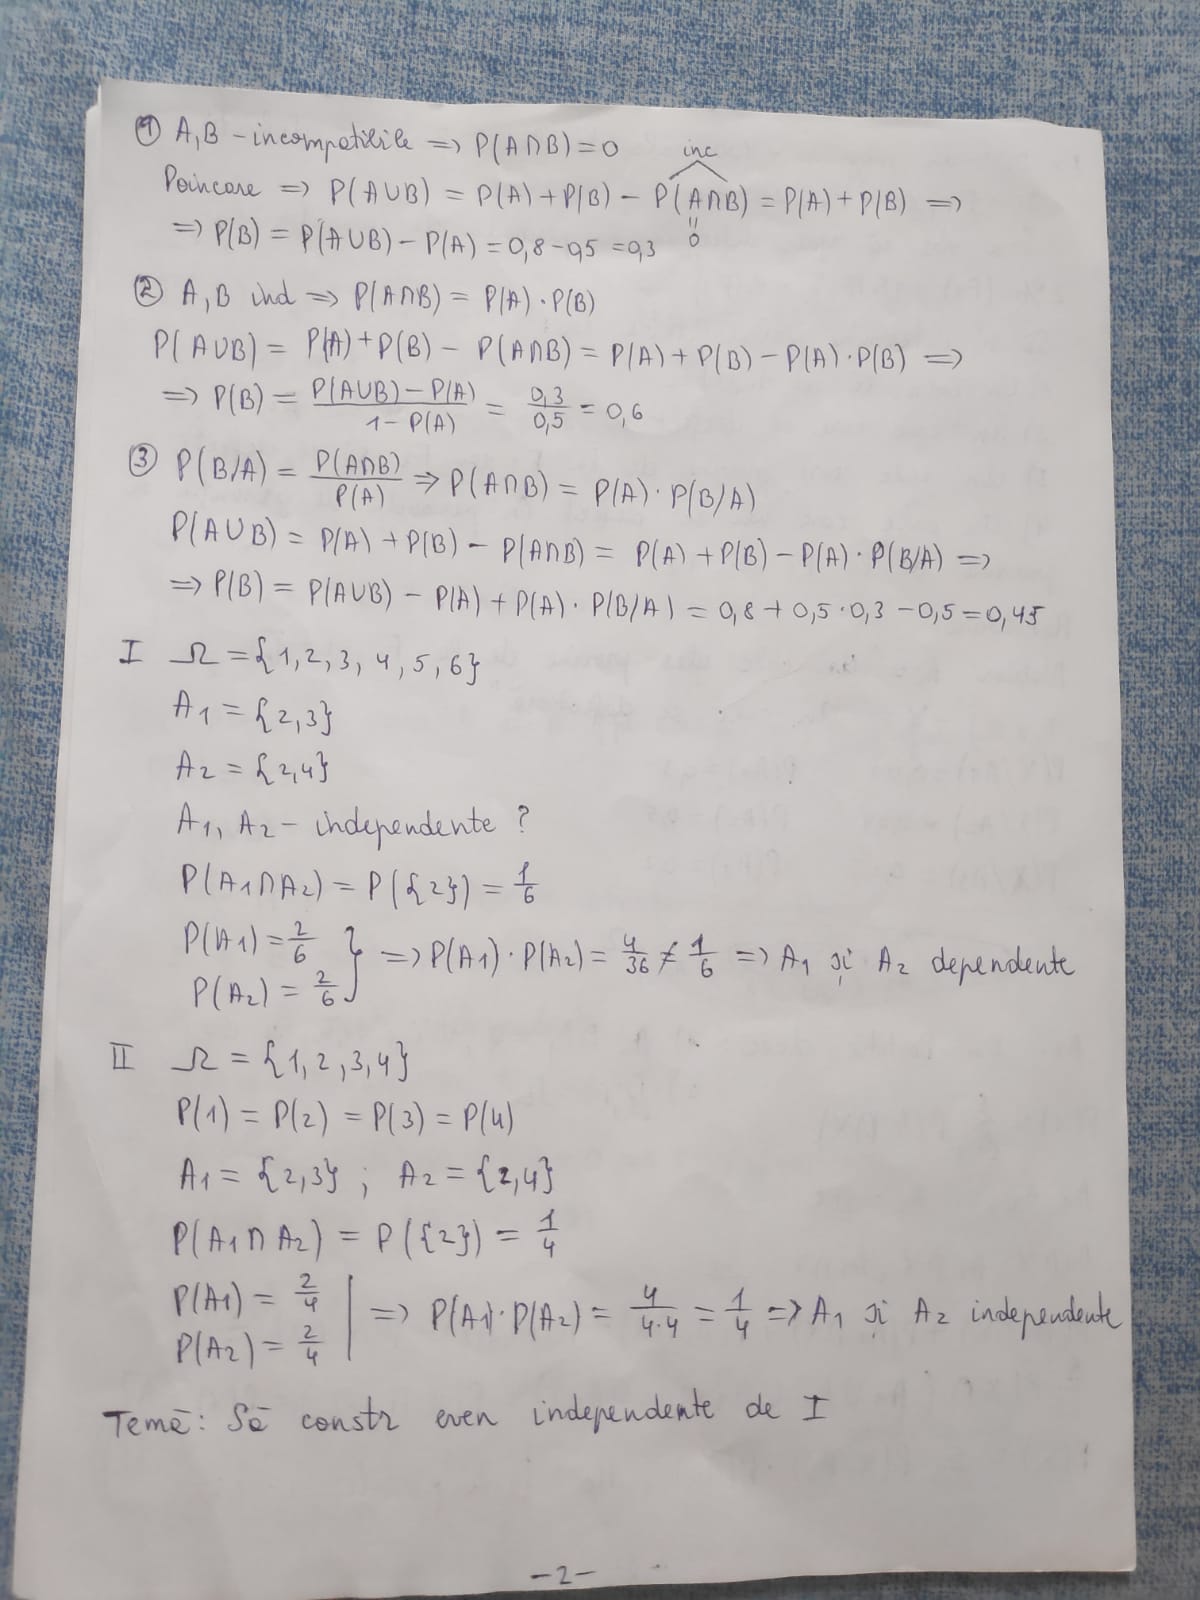 ① A,B - incompatibile => P(A∩B) = 0
inc
Poincare => P(A∪B) = P(A) + P(B) - P(A∩B) = P(A) + P(B) =>
=> P(B) = P(A∪B) - P(A) = 0,8 - 0,5 = 0,3
"
0
② A,B ind => P(A∩B) = P(A) · P(B)
P(A∪B) = P(A) + P(B) - P(A∩B) = P(A) + P(B) - P(A) · P(B) =>
=> P(B) = (P(A∪B) - P(A))/(1 - P(A)) = 0,3/0,5 = 0,6
③ P(B/A) = P(A∩B)/P(A) => P(A∩B) = P(A) · P(B/A)
P(A∪B) = P(A) + P(B) - P(A∩B) = P(A) + P(B) - P(A) · P(B/A) =>
=> P(B) = P(A∪B) - P(A) + P(A) · P(B/A) = 0,8 + 0,5 · 0,3 - 0,5 = 0,45
I Ω = {1, 2, 3, 4, 5, 6}
A₁ = {2,3}
A₂ = {2,4}
A₁, A₂ - independente ?
P(A₁∩A₂) = P({2}) = 1/6
P(A₁) = 2/6
P(A₂) = 2/6 } => P(A₁) · P(A₂) = 4/36 ≠ 1/6 => A₁ și A₂ dependente
II Ω = {1, 2, 3, 4}
P(1) = P(2) = P(3) = P(4)
A₁ = {2,3} ; A₂ = {2,4}
P(A₁∩A₂) = P({2}) = 1/4
P(A₁) = 2/4
P(A₂) = 2/4 | => P(A₁) · P(A₂) = 4/4·4 = 1/4 => A₁ și A₂ independente
Temă: Să constr even independente de I
- 2 -